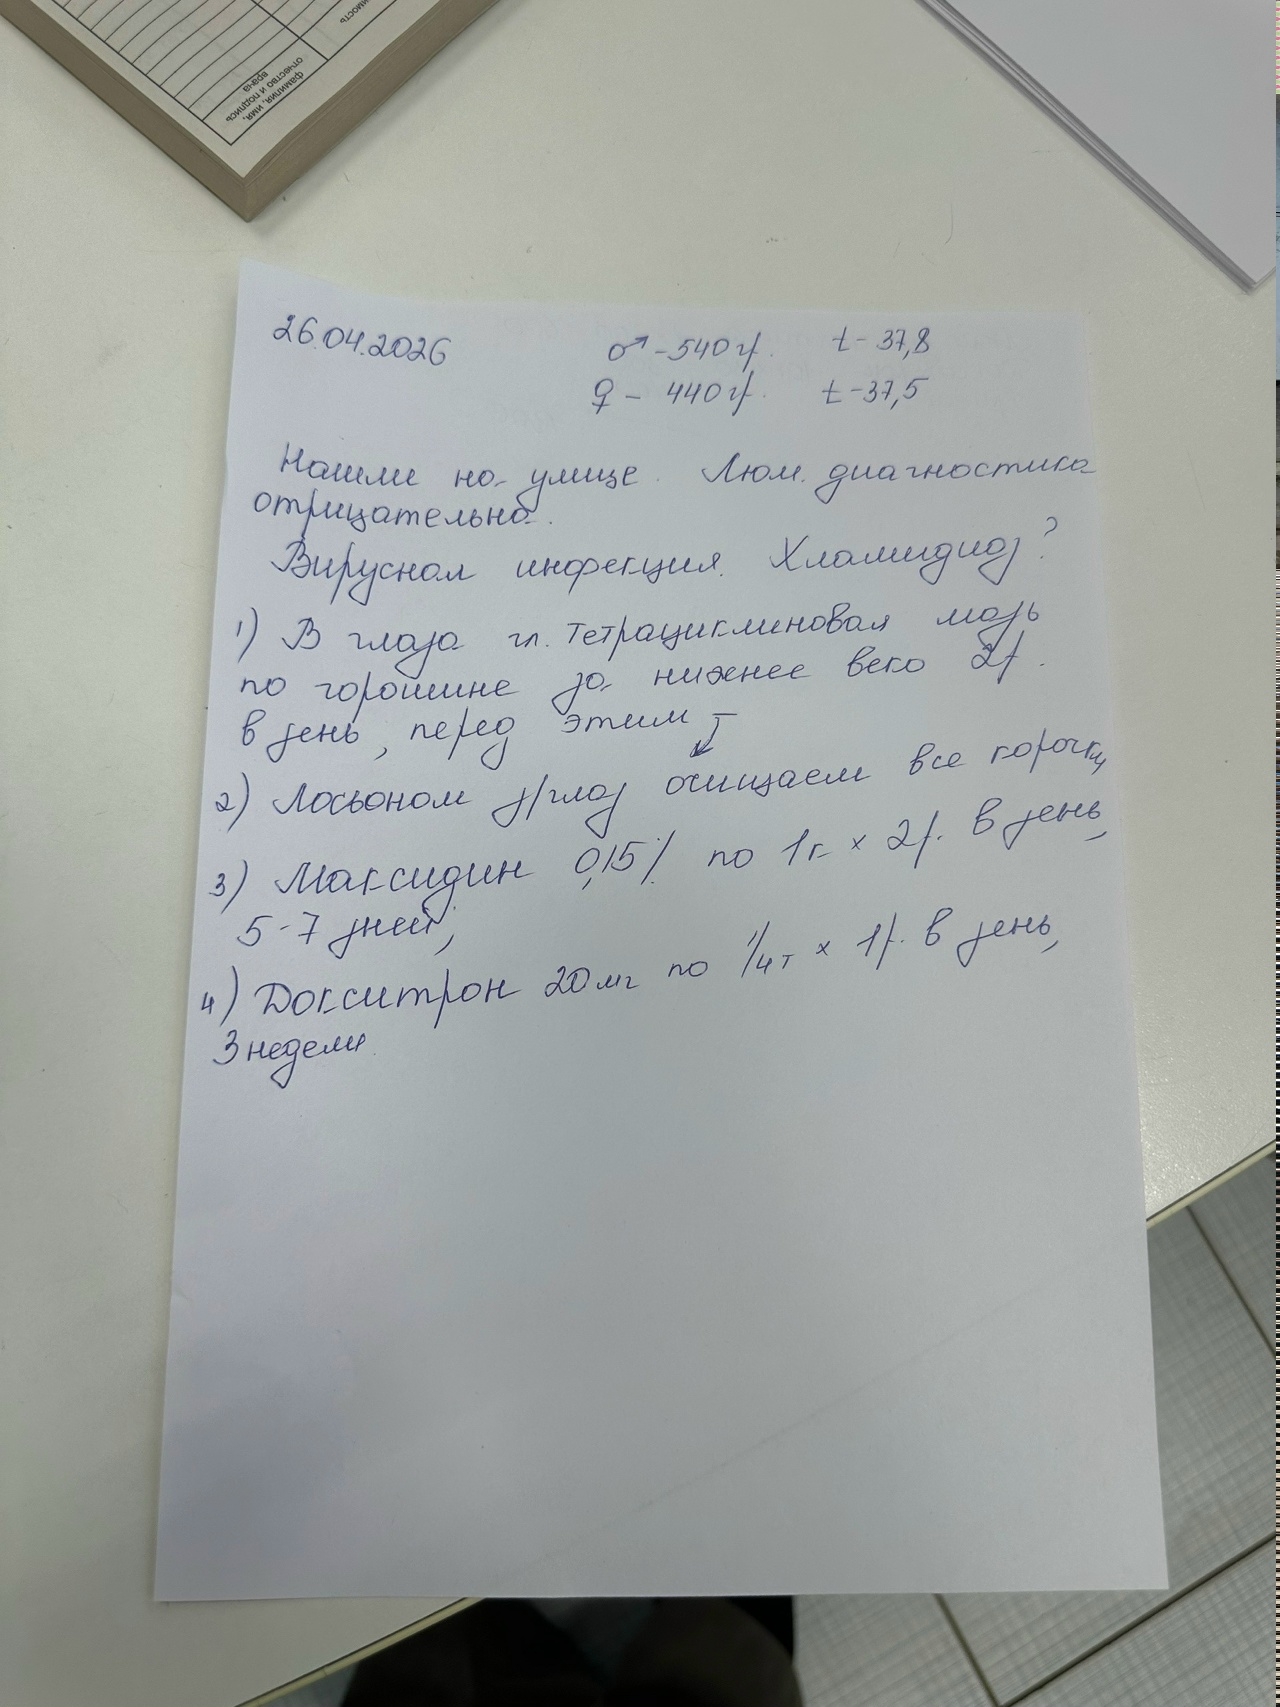 имость
фамилия, имя,
отчество и подпись
врача
26.04.2026 ♂ - 540 гр. t - 37,8
♀ - 440 гр. t - 37,5
Нашли на улице. Люм. диагностика
отрицательно.
Вирусная инфекция. Хламидиоз?
1) В глаза гл. тетрациклиновая мазь
по горошине за нижнее веко 2 р.
в день, перед этим
2) Лосьоном д/глаз очищаем все корочки,
3) Максидин 0,15% по 1 к × 2 р. в день,
5-7 дней;
4) Докситрон 20 мг по 1/4 т × 1 р. в день,
3 недели